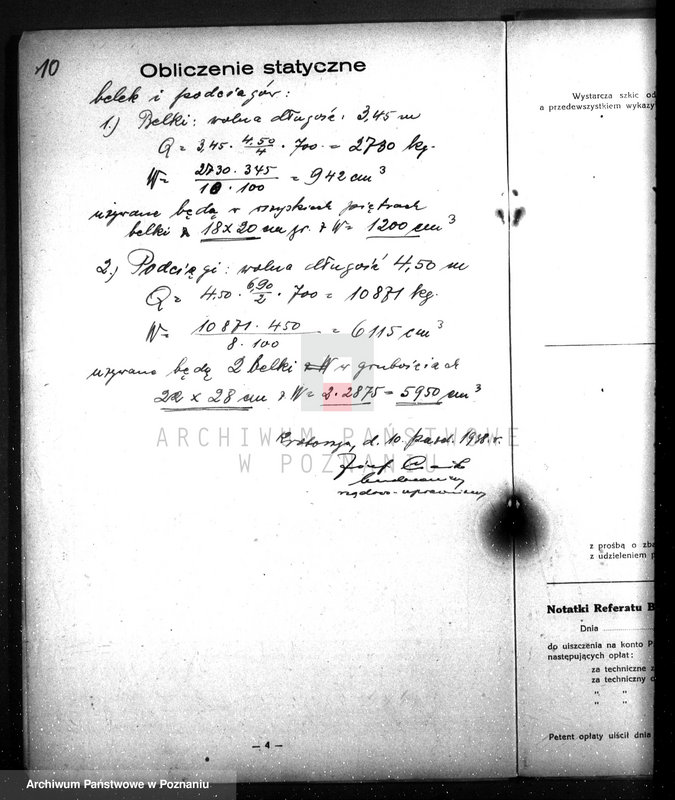 10
Obliczenie statyczne
belek i podciagów:
1.) Belki: wolna długość: 3,45 m
Q = 3,45 · 4,50/4 · 700 = 2730 kg.
W = 2730 · 345 / 10 · 100 = 942 cm³
używane będą w wszystkich piętrach
belki 18 x 20 W = 1200 cm³
2.) Podciągi: wolna długość 4,50 m
Q = 4.50 · 6,90/2 · 700 = 10871 kg.
W = 10871 · 450 / 8 · 100 = 6115 cm³
używane będą 2 belki w grubościach
22 x 28 cm W = 2 · 2875 = 5950 cm³
d. 10. paźd. 1938 r.
Józef
budowniczy
rządowo-uprawniony
ARCHIWUM PAŃSTWOWE
W POZNANIU
— 4 —
Wystarcza szkic od
a przedewszystkiem wykazy
z prośbą o zba
z udzieleniem p
Notatki Referatu B
Dnia
do uiszczenia na konto P
następujących opłat:
za techniczne z
za techniczny o
" "
" "
Petent opłaty uiścił dnia
Archiwum Państwowe w Poznaniu